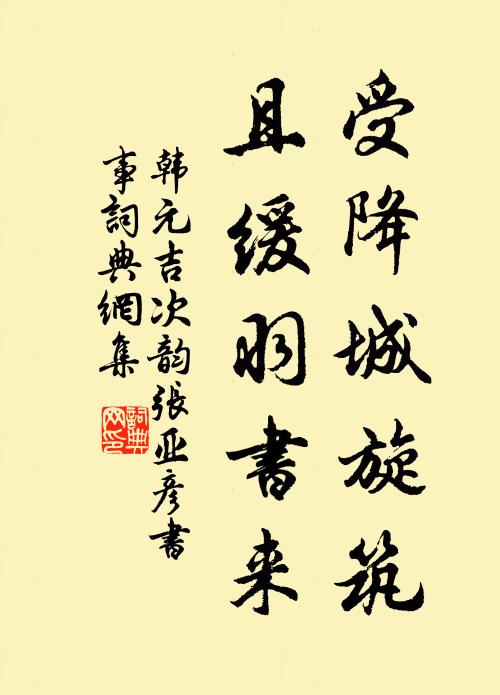 受降城旋筑
且缓羽書来
韩元吉次韵張亚彦書
事詞典網集
詞典
网印